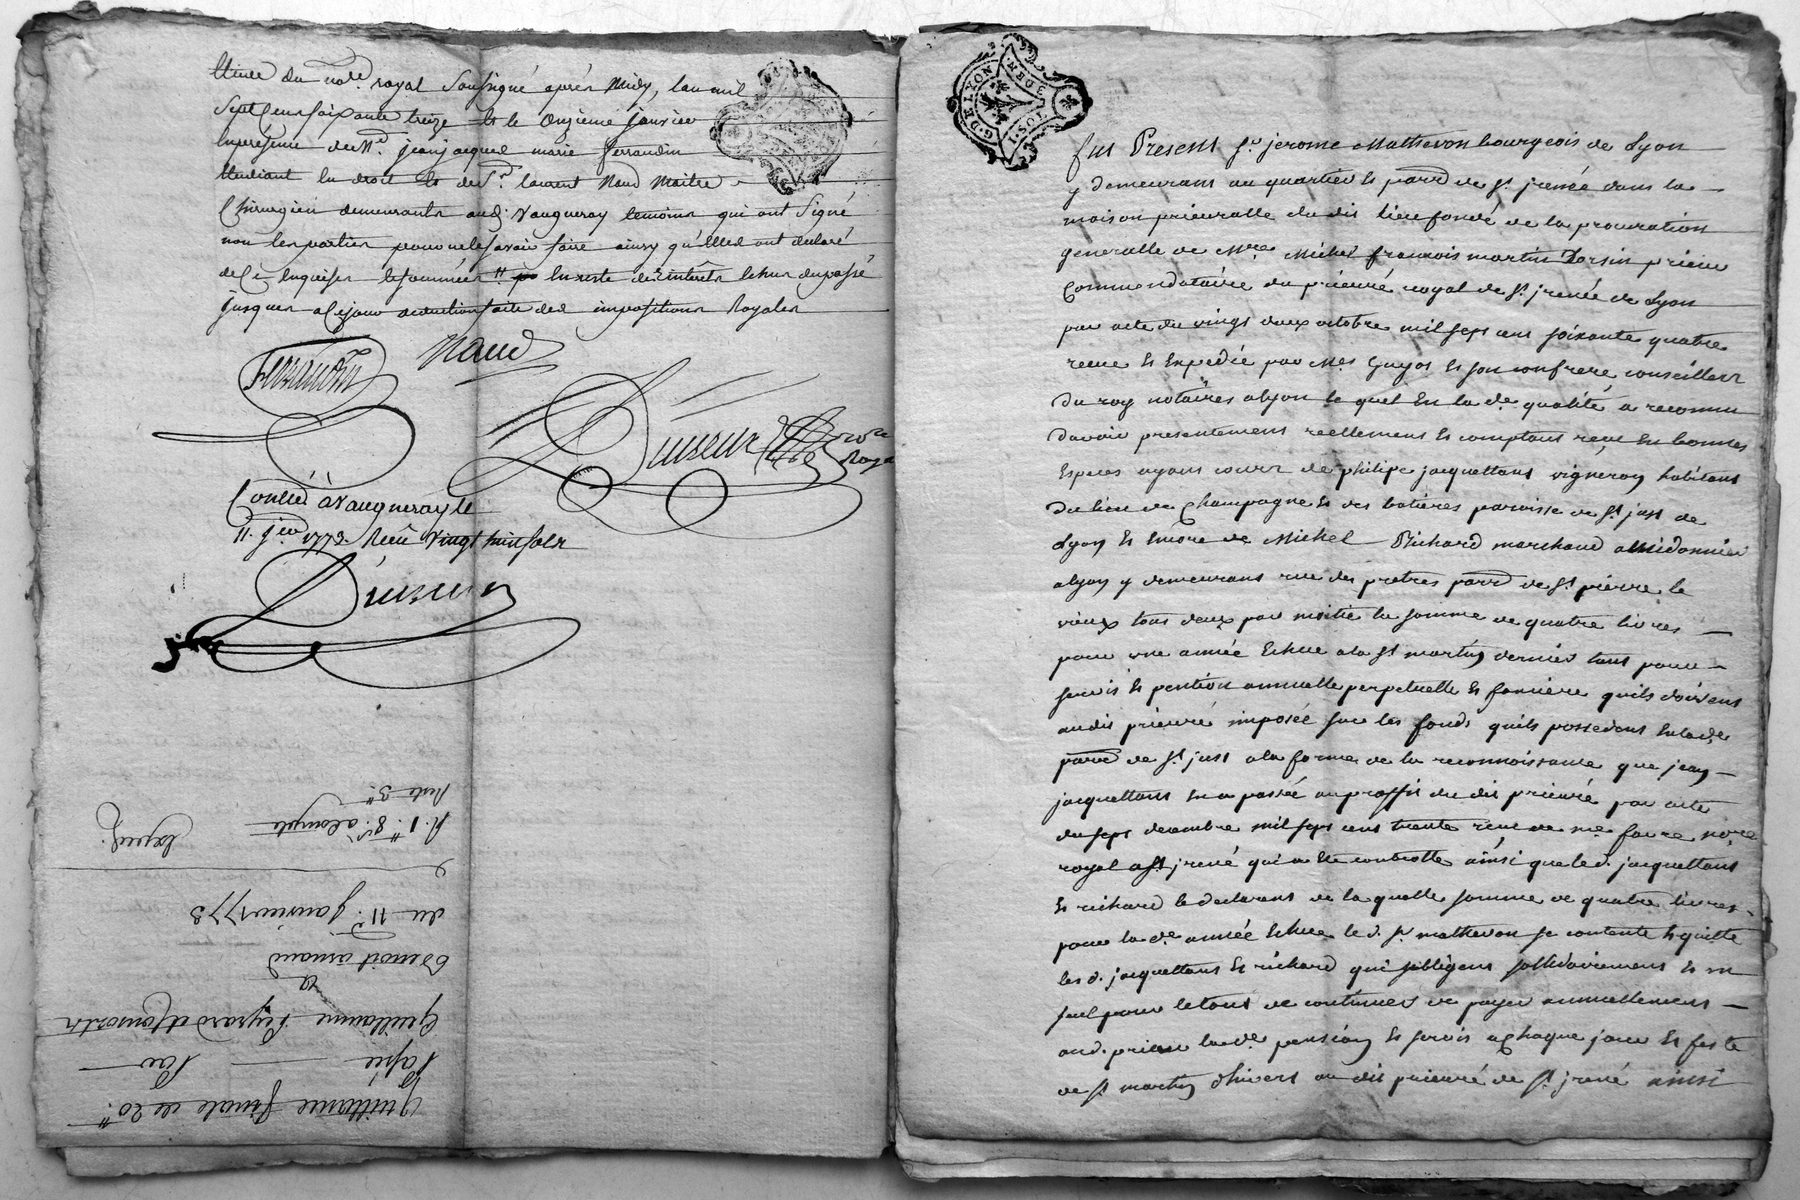 du no.re royal soussigné après midy, l'an mil
sept cens soixante treize et le onzieme janvier
en présence de M.e jean jacques marie ferrandin
étudiant en droit et de S.r laurent Naud Maitre
Chirurgien demeurants aud. Vaugneray temoins qui ont signé
non les parties pour ne le savoir faire ainsy qu'elles ont declaré
de ce enquises et sommées
jusques a ce jour deduction faite des impositions Royales
Ferrandin
Naud
Duseur
Conllé à Vaugneray le
11. j.er 1773. Reçu vingt huit sols
Duseur
Quittance finale de 20.#
Passée Par
Guillaume Peyrard et consorts
a
Benoit arnaud
du 11.e janvier 1773
R. 1.# 8.s a compte
Reste 3.#
G. DE LYON
fut Present S.r jerome Mathevon bourgeois de Lyon
y demeurant au quartier et parr.e de S.t jrenée dans la
maison prieuralle du dit lieu fondé de la procuration
generalle de M.re Michel francois martin Torsin prieur
Commendataire du prieuré royal de S.t jrenée de Lyon
par acte du vingt deux octobre mil sept cent soixante quatre
recue et expedié par M.es Guyot et son confrere conseillers
du roy notaires a lyon le quel en la d.e qualité a reconnu
davoir presentement reellement et comptant reçu en bonnes
especes ayant cours de philipe jacquettant vigneron habitant
du lieu de Champagne et des batieres paroisse de S.t just de
Lyon et encore de Michel Richard marchand amidonnier
a lyon y demeurant rue des pretres parr.e de S.t pierre le
vieux tous deux par moitié la somme de quatre livres
pour une année echue a la S.t martin dernier tant pour
servis et pention annuelle perpetuelle et fonciere quils doivent
audit prieuré imposée sur les fonds quils possedent en lad.e
parr.e de S.t just a la forme de la reconnoissance que jean
jacquettant en a passée au proffit du dit prieuré par acte
du sept decembre mil sept cent trente recu de m.e favre no.re
royal a S.t jrené qui a été controllé ainsi que le d. jacquettant
et richard le declarent de la quelle somme de quatre livres
pour la d.e année echue le d. S.r mathevon se contente et quitte
les d. jacquettant et richard qui sobligent sollidairement et un
seul pour le tout de continuer de payer annuellement
aud. prieur la d.e pension et servis a chaque jour et feste
de S.t martin dhivert au dit prieuré de S.t jrené ainsi